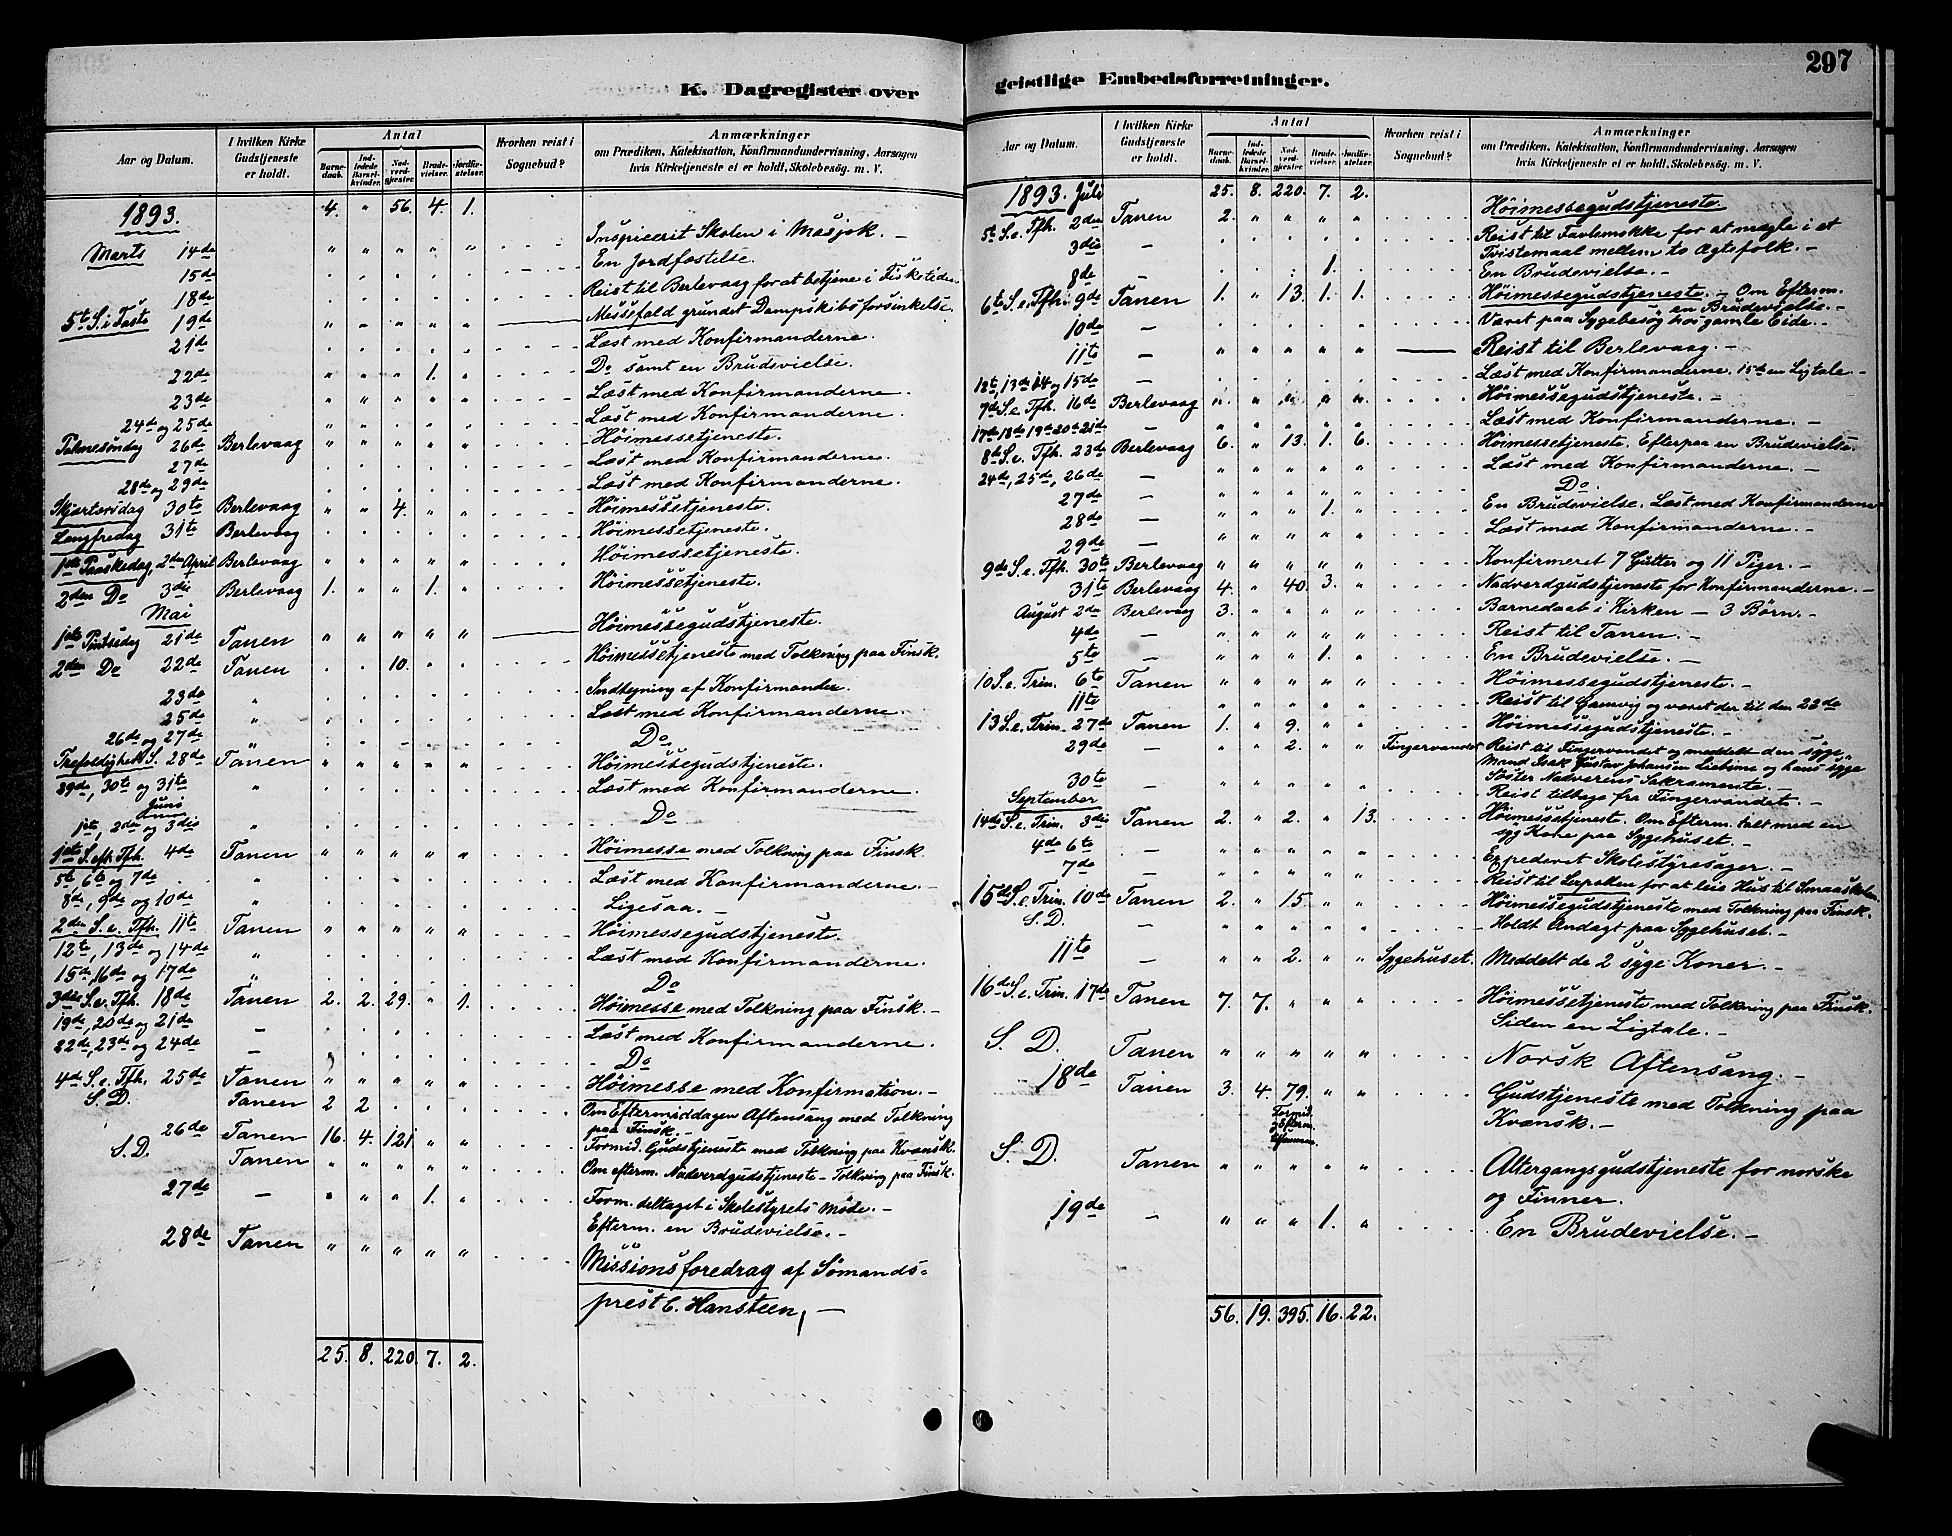 297
K. Dagregister over
geistlige Embedsforretninger.
Aar og Datum.
I hvilken Kirke Gudstjeneste er holdt.
Antal
Barnedaab.
Indledede Barselkvinder.
Nadverdgjester.
Brudevielser.
Jordfæstelser.
Hvorhen reist i Sognebud?
Anmærkninger
om Prædiken, Katekisation, Konfirmandundervisning, Aarsagen
hvis Kirketjeneste ei er holdt, Skolebesøg. m. V.
1893. 4. " 56. 4. 1.
Marts 14de " " " " " Inspicerit Skolen i Masjok. –
15de En Jordfæstelse.
18de Reist til Berlevaag for at betjene i Fisketiden
5te S. i Faste 19de " " " " " Messefald grundet Dampskibsforsinkelse.
21de Læst med Konfirmanderne.
22de " " " 1. " Do samt en Brudevielse.
23de " " " " " Læst med Konfirmanderne.
24de og 25de Læst med Konfirmanderne.
Palmesøndag 26de Berlevaag " " " " " Høimessetjeneste.
27de Læst med Konfirmanderne.
28de og 29de Læst med Konfirmanderne.
Skjærtorsdag 30te Berlevaag " " 4. " " Høimessetjeneste.
Langfredag 31te Berlevaag Høimessetjeneste.
1ste Paaskedag, 2den April Berlevaag " " " " " Høimessetjeneste.
2den Do 3die Berlevaag 1. " " 1. " Høimessetjeneste.
Mai
1ste Pintsedag 21de Tanen " " " " " Høimessegudstjeneste.
2den Do 22de Tanen 10. Høimessetjeneste med Tolkning paa Finsk.
23de " Indtegning af Konfirmander.
25de " Læst med Konfirmanderne.
26de og 27de " Do
Trefoldigheds S. 28de Tanen " " " " " Høimessegudstjeneste.
29de, 30te og 31te " Læst med Konfirmanderne.
Juni
1ste, 2den og 3die " Do
1ste S. eft. Tfh. 4de Tanen " " " " " Høimesse med Tolkning paa Finsk.
5te, 6te og 7de " Læst med Konfirmanderne. –
8de, 9de og 10de " Ligesaa. –
2den S. e. Tfh. 11te Tanen " " " " " Høimessegudstjeneste.
12te, 13de og 14de " Læst med Konfirmanderne.
15de, 16de og 17de " Do
3die S. e. Tfh. 18de Tanen 2. 2. 29. " 1. Høimesse med Tolkning paa Finsk. –
19de, 20de og 21de – Læst med Konfirmanderne.
22de, 23de og 24de – Do
4de S. e. Tfh. 25de Tanen " " " " " Høimesse med Konfirmation. –
S. D. Tanen 2 2 Om Eftermiddagen Aftensang med Tolkning
paa Finsk. –
26de Tanen 16. 4. 121 " " Formid. Gudstjeneste med Tolkning paa Kvænsk.
S. D. Tanen " " " " " Om efterm. Nadverdgudstjeneste – Tolkning paa Finsk.
27de – " " " 1. " Form. deltaget i Skolestyrets Møde. –
Efterm. en Brudevielse. –
28de Tanen " " " " " Missionsforedrag af Sømands-
prest C. Hansteen, –
25. 8. 220. 7. 2.
Aar og Datum.
I hvilken Kirke Gudstjeneste er holdt.
Antal
Barnedaab.
Indledede Barselkvinder.
Nadverdgjester.
Brudevielser.
Jordfæstelser.
Hvorhen reist i Sognebud?
Anmærkninger
om Prædiken, Katekisation, Konfirmandundervisning, Aarsagen
hvis Kirketjeneste ei er holdt, Skolebesøg. m. V.
1893. Juli – 25. 8. 220. 7. 2.
5te S. e. Tfh. 2den Tanen 2. " " " " Høimessegudstjeneste.
3die – Reist til for at mægle i et
Tvistemaal mellem to Ægtefolk. –
8de – 1. En Brudevielse. –
6te S. e. Tfh. 9de Tanen 1. " 13. 1. 1. Høimessegudstjeneste. – Om Efterm.
en Brudevielse. –
10de – Været paa Sygebesøg hos gamle Eide. –
11te – " " " " " Reist til Berlevaag. –
12te, 13de 14 og 15de – Læst med Konfirmanderne. 15de en Ligtale –
7de S. e. Tfh. 16de Berlevaag " " " " " Høimessetjeneste. –
17de 18de 19de 20de 21de – Læst med Konfirmanderne. –
8de S. e. Tfh. 23de Berlevaag 6. " 13. 1. 6. Høimessetjeneste. Efterpaa en Brudevielse.
24de, 25de, 26de – " " " " " Læst med Konfirmanderne. –
27de – " " " " " Do.
28de – " " " 1. " En Brudevielse. Læst med Konfirmanderne
29de – " " " " " Læst med Konfirmanderne. –
9de S. e. Tfh. 30te Berlevaag " " " " " Konfirmeret 7 Gutter og 11 Piger. –
31te Berlevaag 4. " 40. 3. " Nadverdgudstjeneste for Konfirmanderne. –
August 2den Berlevaag 3. " " " " Barnedaab i Kirken – 3 Børn. –
4de – " " " " " Reist til Tanen. –
5te – " " " 1. " En Brudevielse. –
10 S. e. Trin. 6te Tanen " " " " " Høimessegudstjeneste. –
11te " " " " " Reist til Gamvig og været der til den 22de
13 S. e. Trin. 27de Tanen 1. " 9. " " Høimessegudstjeneste. –
29de – " " 2. " " Fingervandet Reist til Fingervandet og meddelt den syge
Mand Isak Gustav Johansen og hans syge
Søster Nadverens Sakramente.
30te – " " " " " Reist tilbage fra Fingervandet. –
September
14de S. e. Trin. 3die Tanen 2. " 2. " 13. Høimessetjeneste. Om Efterm. talt med en
syg Kone paa Sygehuset. –
4de 6te – " " " " " Expederet Skolestyresager. –
7de – " " " " " Reist til for at leie Hus til Smaaskolen.
15de S. e. Trin. 10de Tanen 2. " 15. " " Høimessegudstjeneste med Tolkning paa Finsk.
S. D. – " " " " " Holdt Andagt paa Sygehuset. –
11te – " " 2. " " Sygehuset. Meddelt de 2 syge Koner. –
16de S. e. Trin. 17de Tanen 7. 7. " " " Høimessetjeneste med Tolkning paa Finsk.
Siden en Ligtale. –
S. D. Tanen " " " " " Norsk Aftensang. –
18de Tanen 3. 4. 79. " " Gudstjeneste med Tolkning paa
Formid.
og Efterm.
Kvænsk. –
S. D. Tanen " " " " " Altergangsgudstjeneste for norske
og Finner.
19de – " " " 1. " En Brudevielse. –
56. 19. 395. 16. 22.